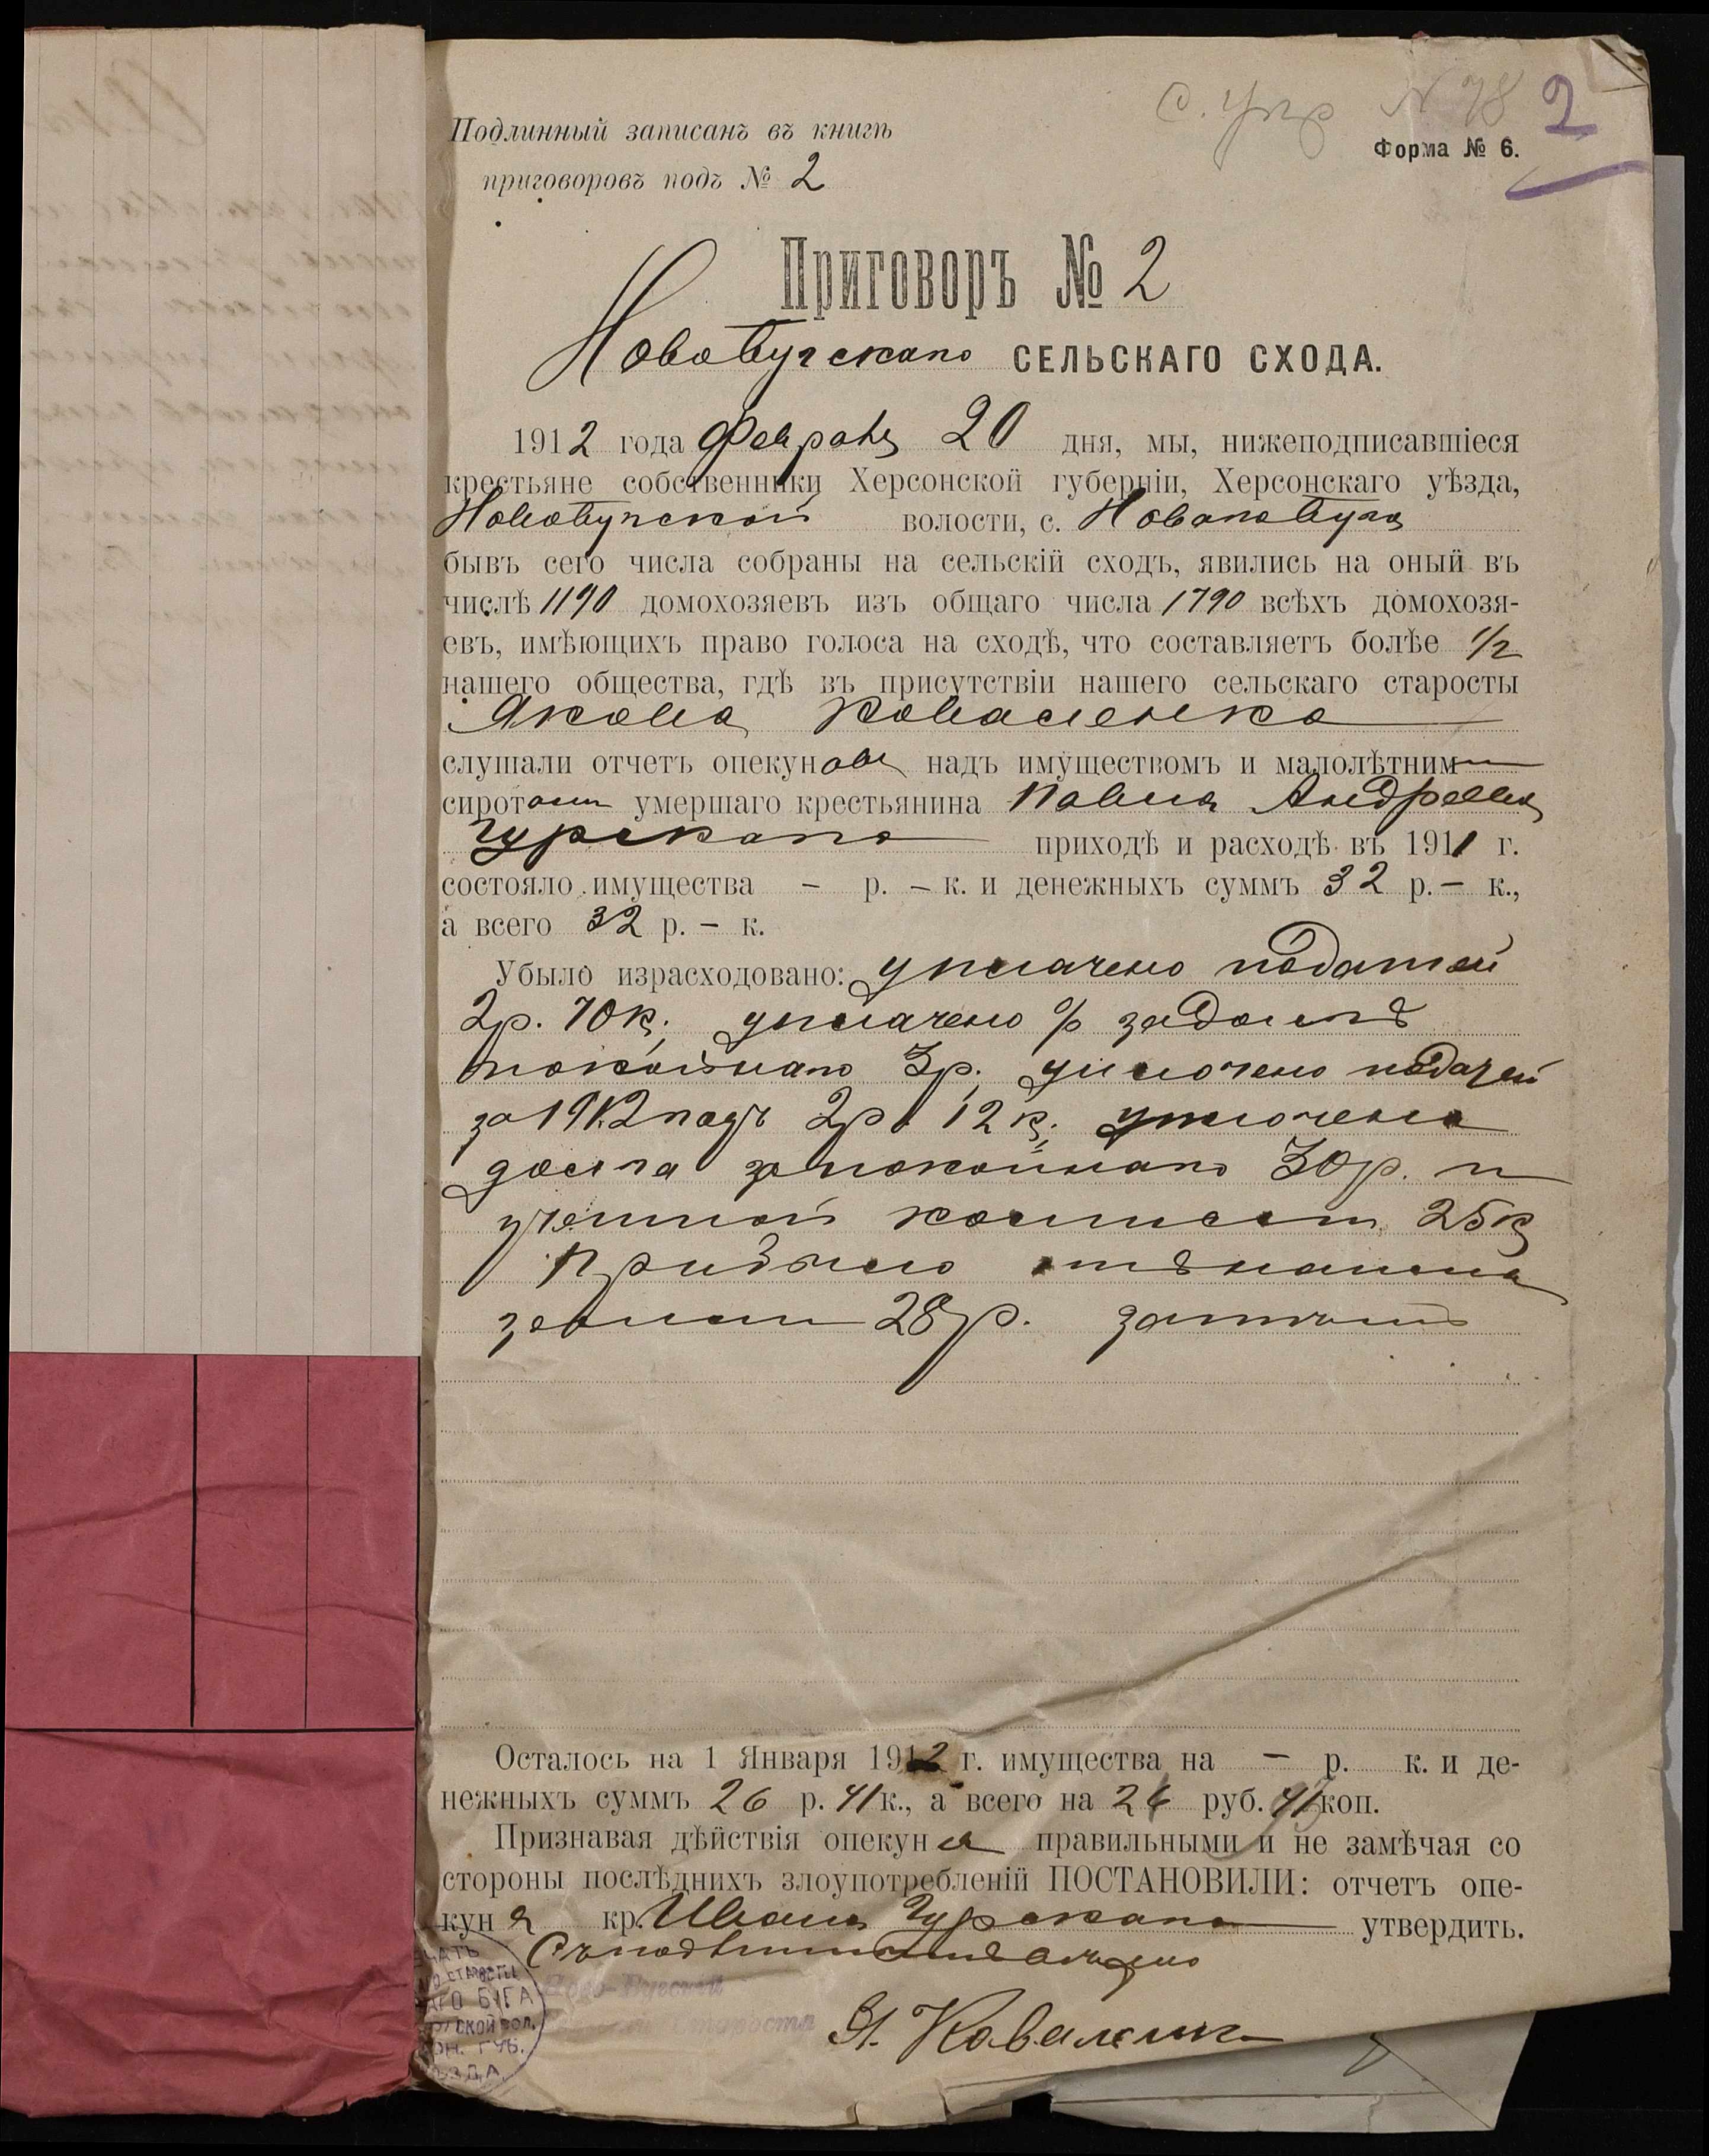 С. Упр № 78 2
Подлинный записанъ въ книгѣ
Форма № 6.
приговоровъ подъ № 2
Приговоръ № 2
Новобугскаго СЕЛЬСКАГО СХОДА.
1912 года Февраля 20 дня, мы, нижеподписавшіеся
крестьяне собственники Херсонской губерніи, Херсонскаго уѣзда,
Новобугской волости, с. Новаго Буга
бывъ сего числа собраны на сельскій сходъ, явились на оный въ
числѣ 1190 домохозяевъ изъ общаго числа 1790 всѣхъ домохозя-
евъ, имѣющихъ право голоса на сходѣ, что составляетъ болѣе 1/2
нашего общества, гдѣ въ присутствіи нашего сельскаго старосты
Якова Коваленко
слушали отчетъ опекунова надъ имуществомъ и малолѣтними
сиротами умершаго крестьянина Павла Андреева
Гурскаго приходѣ и расходѣ въ 1911 г.
состояло имущества – р. – к. и денежныхъ суммъ 32 р. – к.,
а всего 32 р. – к.
Убыло израсходовано: уплачено податей
2р. 70к; уплачено % за долгъ
покойнаго 3р; уплочено податей
за 1912 годъ 2р 12к; уплочено
долга за покойнаго 30р. и
учетной комисіи 25к
Прибыло отъ найма
земли 28р.
Осталось на 1 Января 1912 г. имущества на – р. к. и де-
нежныхъ суммъ 26 р. 41 к., а всего на 26 руб. 41 коп.
Признавая дѣйствія опекуна правильными и не замѣчая со
стороны послѣднихъ злоупотребленій ПОСТАНОВИЛИ: отчетъ опе-
куна кр. Ивана Гурскаго утвердить.
Съ подлиннымъ вѣрно
Ново-Бугскій
Староста Я. Коваленко
ПЕЧАТЬ
СТАРОСТЫ
АГО БУГА
СКОЙ ВОЛ.
ГУБ.
ѢЗДА